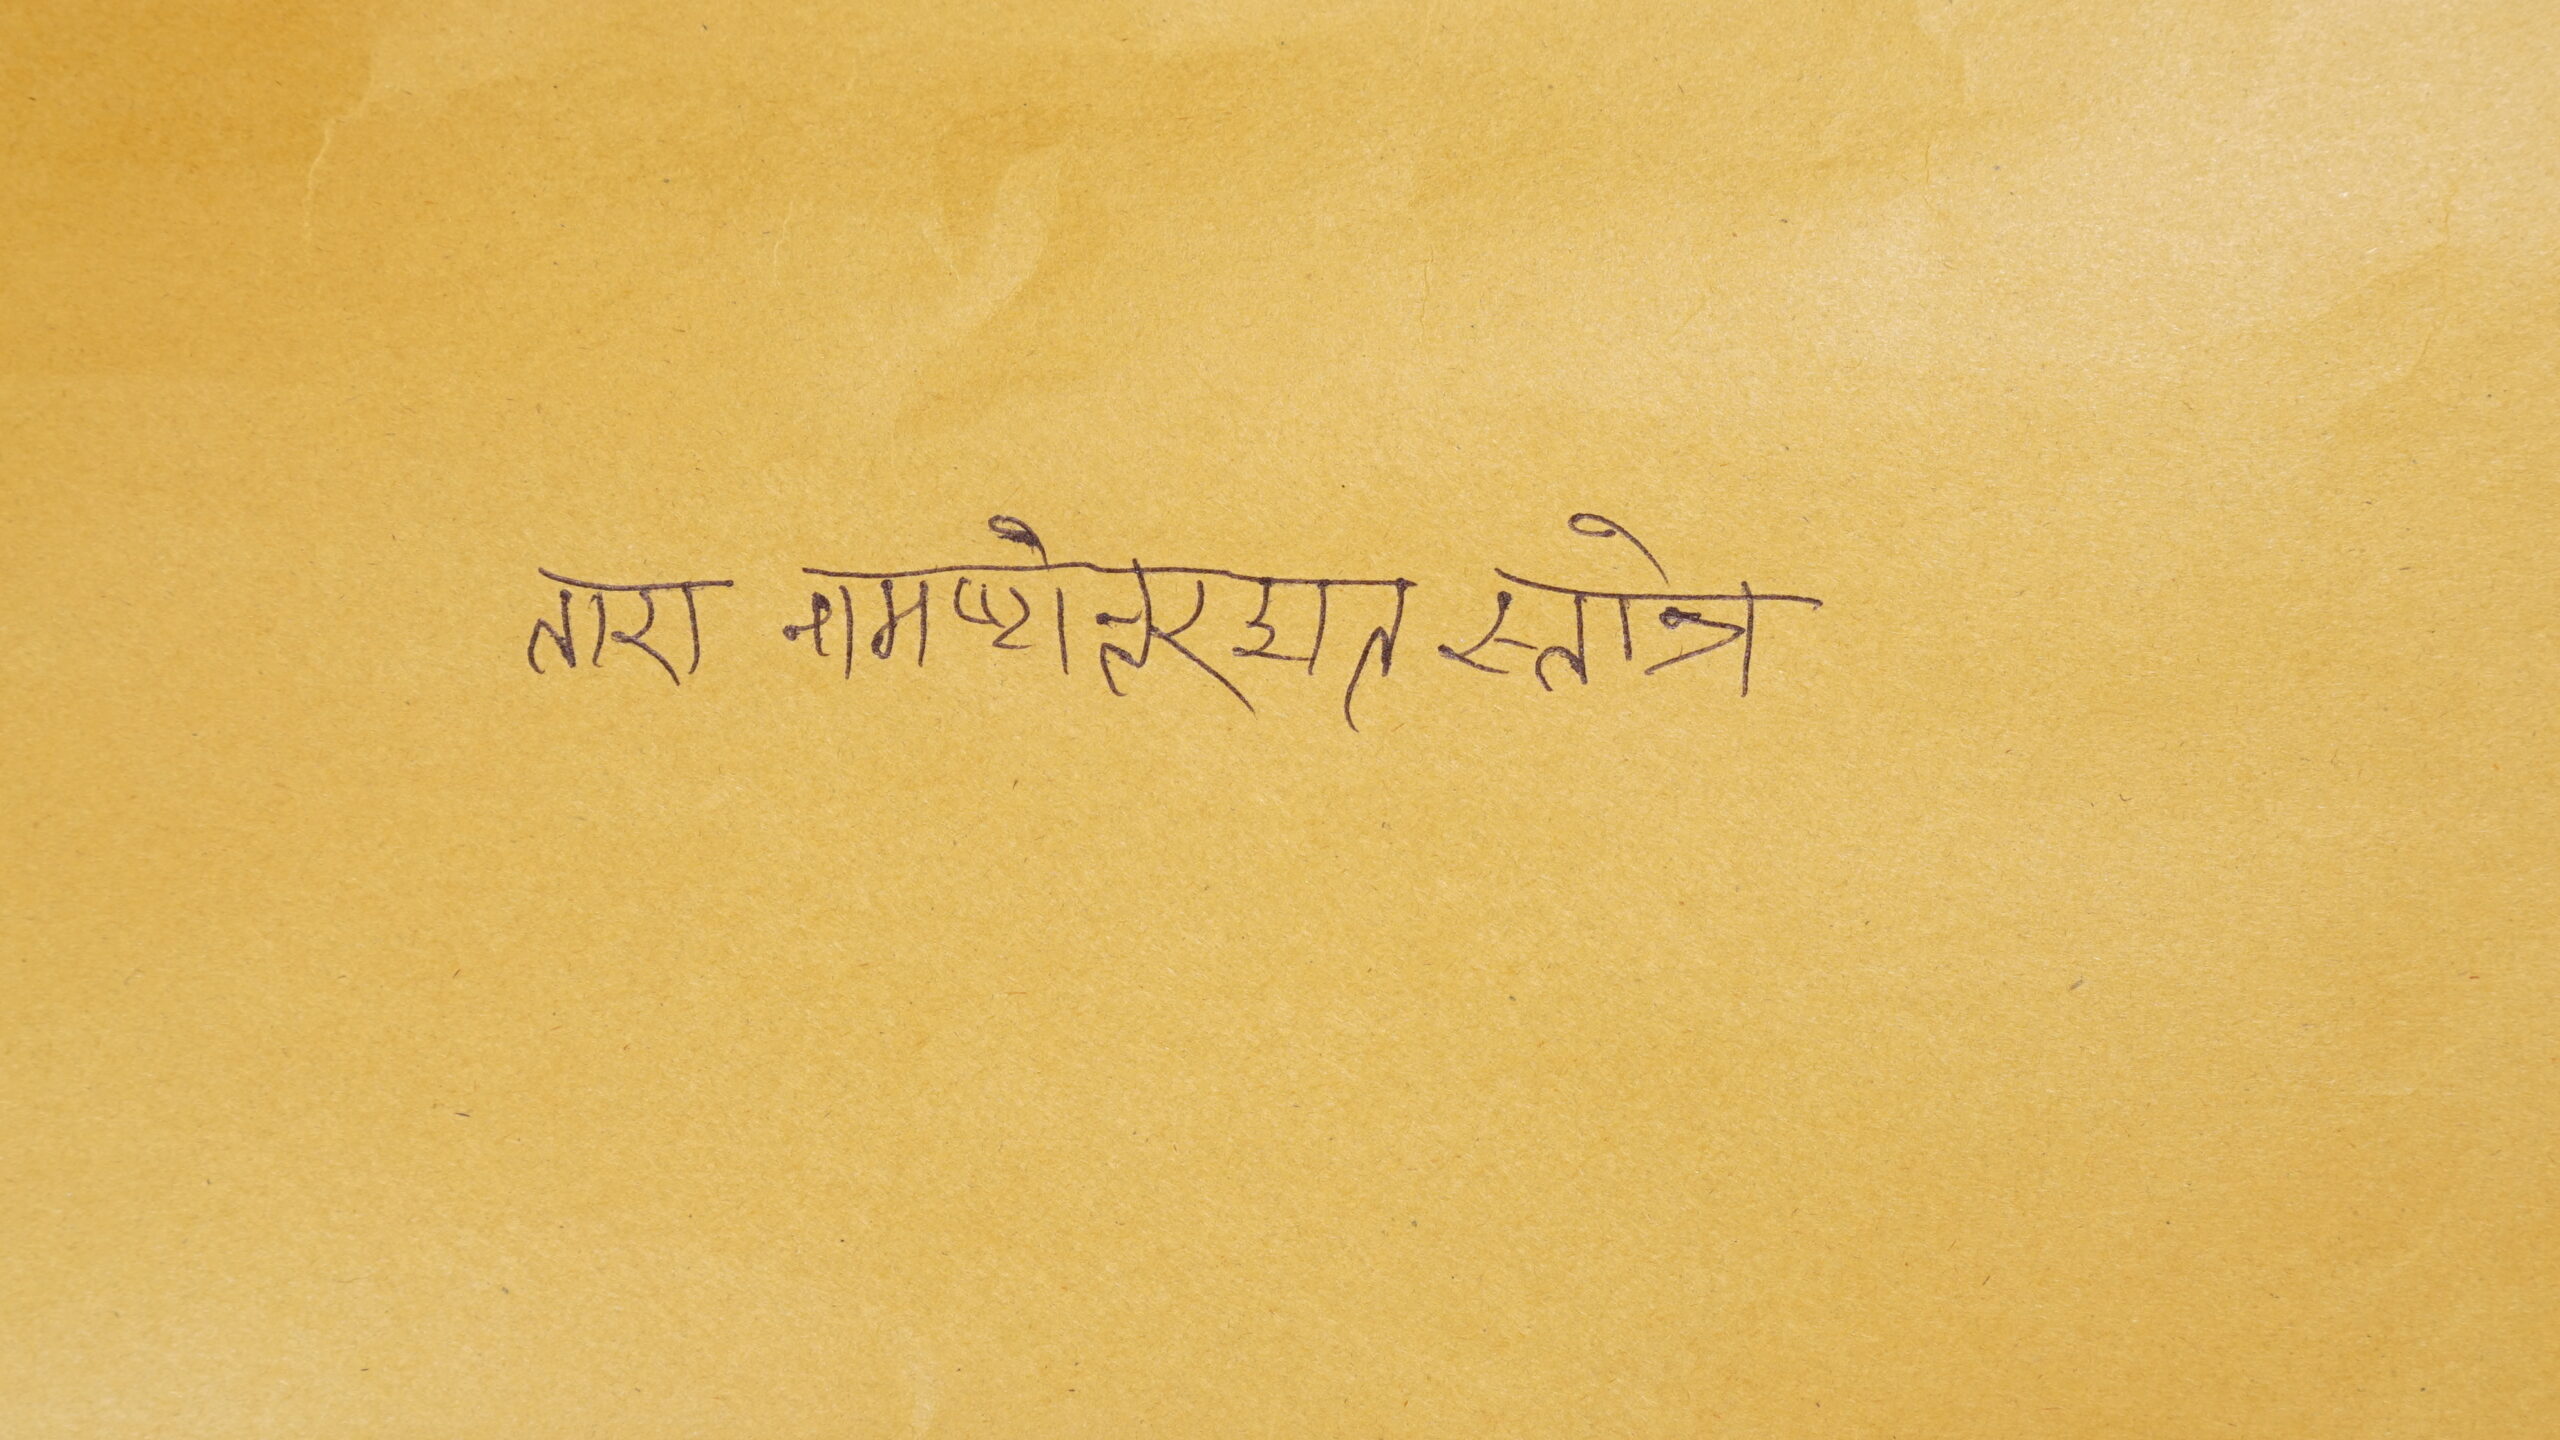 तारा नामष्टोत्तरशत स्तोत्र